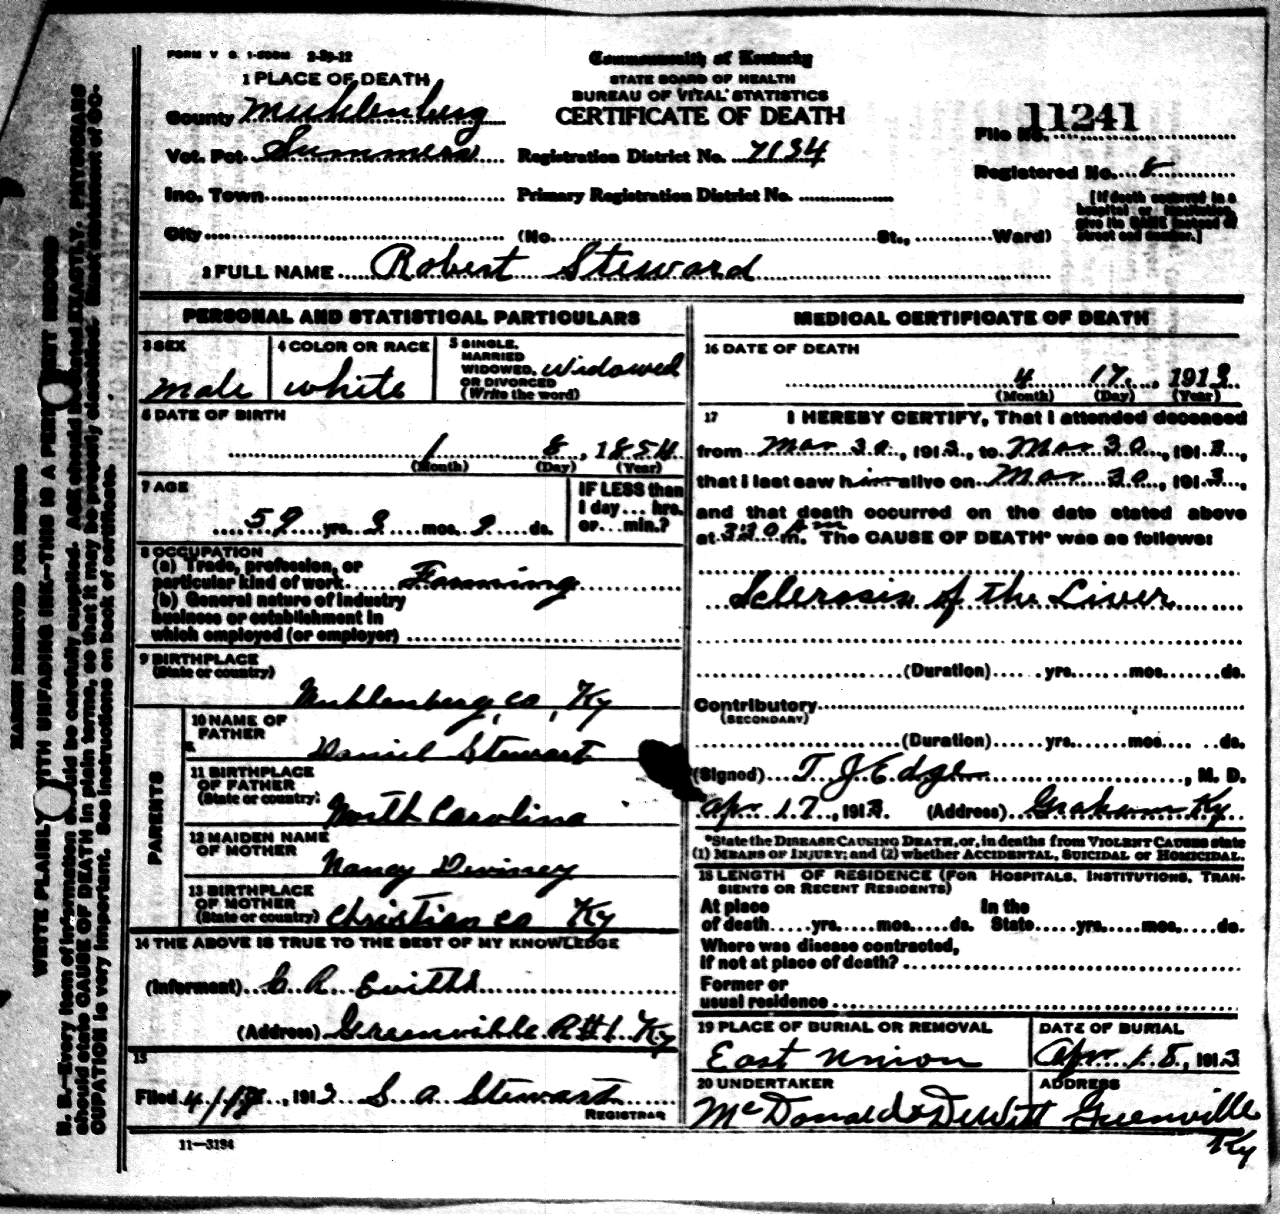 FORM V. S. 1-FORM 2-29-12
Commonwealth of Kentucky
STATE BOARD OF HEALTH
BUREAU OF VITAL STATISTICS
CERTIFICATE OF DEATH
1 PLACE OF DEATH
County Muhlenberg
Vot. Pct. Summers Registration District No. 7134
File No. 11241
Registered No. 8
Inc. Town Primary Registration District No.
City (No. St., Ward)
[If death occurred in a
hospital or institution,
give its NAME instead of
street and number.]
2 FULL NAME Robert Steward
PERSONAL AND STATISTICAL PARTICULARS
3 SEX
male
4 COLOR OR RACE
white
5 SINGLE,
MARRIED
WIDOWED,
OR DIVORCED
(Write the word)
widowed
6 DATE OF BIRTH
1 8, 1854
(Month) (Day) (Year)
7 AGE
59 yrs. 3 mos. 9 ds.
IF LESS than
1 day... hrs.
or... min.?
8 OCCUPATION
(a) Trade, profession, or
particular kind of work Farming
(b) General nature of industry
business or establishment in
which employed (or employer)
9 BIRTHPLACE
(State or country)
Muhlenberg, co, Ky
PARENTS
10 NAME OF
FATHER
Daniel Stewart
11 BIRTHPLACE
OF FATHER
(State or country)
North Carolina
12 MAIDEN NAME
OF MOTHER
Nancy
13 BIRTHPLACE
OF MOTHER
(State or country)
Christian co Ky
14 THE ABOVE IS TRUE TO THE BEST OF MY KNOWLEDGE
(Informant) C R
(Address) Greenville R#1. Ky
15
Filed 4/18, 1913 S. A Stewart
REGISTRAR
11—3194
MEDICAL CERTIFICATE OF DEATH
16 DATE OF DEATH
4 17, 1913
(Month) (Day) (Year)
17 I HEREBY CERTIFY, That I attended deceased
from Mar 30, 1913, to Mar 30, 1913,
that I last saw him alive on Mar 30, 1913,
and that death occurred on the date stated above
at 330 Am m. The CAUSE OF DEATH* was as follows:
Sclerosis of the Liver
(Duration) yrs. mos. ds.
Contributory
(SECONDARY)
(Duration) yrs. mos. ds.
(Signed) T J Edge, M. D.
Apr 17, 1913 (Address) Graham Ky
*State the DISEASE CAUSING DEATH, or, in deaths from VIOLENT CAUSES state
(1) MEANS OF INJURY; and (2) whether ACCIDENTAL, SUICIDAL or HOMICIDAL.
18 LENGTH OF RESIDENCE (FOR HOSPITALS, INSTITUTIONS, TRAN-
SIENTS OR RECENT RESIDENTS)
At place In the
of death yrs. mos. ds. State yrs. mos. ds.
Where was disease contracted,
if not at place of death?
Former or
usual residence
19 PLACE OF BURIAL OR REMOVAL
East Union
DATE OF BURIAL
Apr 18, 1913
20 UNDERTAKER
McDonald & DeWitt
ADDRESS
Greenville
Ky
MARGIN RESERVED FOR BINDING
WRITE PLAINLY WITH UNFADING INK—THIS IS A PERMANENT RECORD
N. B.—Every item of information should be carefully supplied. AGE should be stated EXACTLY. PHYSICIANS
should state CAUSE OF DEATH in plain terms, so that it may be properly classified. Exact statement of OC-
CUPATION is very important. See instructions on back of certificate.